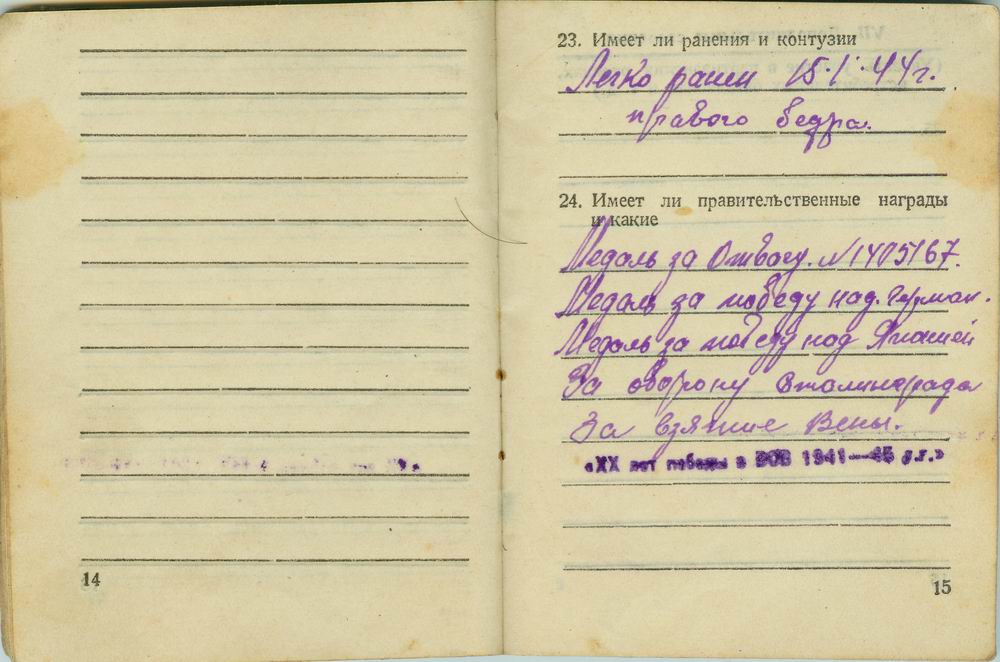 23. Имеет ли ранения и контузии
Легко ранен 15.1.44г.
правого бедра.
24. Имеет ли правительственные награды
и какие
Медаль за Отвагу. N1405167.
Медаль за победу над. Герман.
Медаль за победу над Японией
За оборону Сталинграда
За взятие Вены.
«XX лет победы в ВОВ 1941—45 г.г.»
14
15